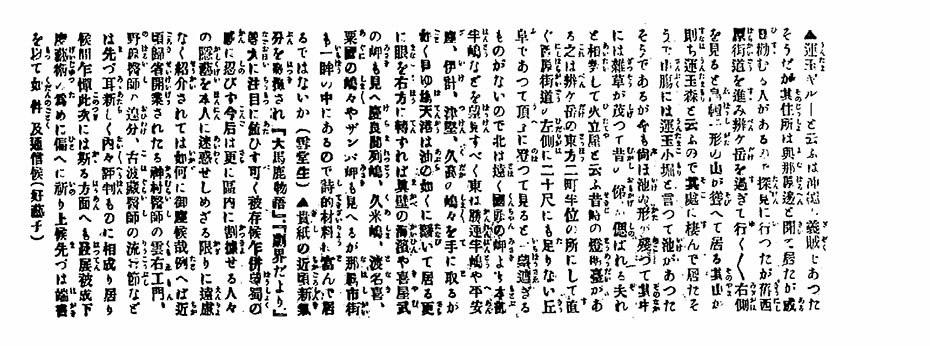 ▲運玉ギルーと云ふは沖繩の義賊であつた
そうだが其住所は與那原邊と聞て居たが或
日物むる人があるので探見に行つたが首西
原街道を進み辨ケ岳を過ぎて行く〱右側
を見ると形の山が聳へて居る其山が
則ち運玉森と云ふので其處に棲んで居たそ
うで山腹には運玉小堀と言つて池があつた
そうであるが今も尙ほ池の形が殘つて其中
には雜草が茂つて昔の俤が偲ばれる夫れ
と相對して火立屋と云ふ昔時の燈臺があ
る之は辨ケ岳の東方二町半位の所にして直
ぐ西原街道の左側に二十尺にも足りない丘
阜であつて頂上に登つて見ると遮ぎる
ものがないので北は遠く國頭の岬より本部
半嶋などを見すべく東は勝連半嶋や平安
座、伊計、津堅、久高の嶋々を手に取るが
如く見ゆ馬天港は油の如くに輝いて居る更
に眼を右方に轉ずれば眞壁の海濱や喜屋武
の岬も見へ慶良間列嶋、久米嶋、渡名喜、
粟國の嶋々やザンパ岬も見へるが那覇市街
も一眸の中にあるので詩的材料に富んで居
るではないか（雲堂生）▲貴紙の近頃新氣
分を發揮され『大馬鹿物語』『劇界だより』
等大に注目に値ひす可く被存候乍併薄蜀の
感に忍びず今后は更に區內に割據せる人々
の隱藝を本人に迷惑せしめざる限りに遠慮
なく紹介されては如何に御座候哉例へば近
頃歸省開業されたる神村醫師の雲右工門、
野原醫師の追分、古波藏醫師の流行節など
は先づ耳新しく內々評判ものに相成り居り
候間乍憚此次には斯る方面へも發展被成下
度藝術の爲めに偏へに祈り上候先づは端書
を以て如件 及通信候（好藝子）